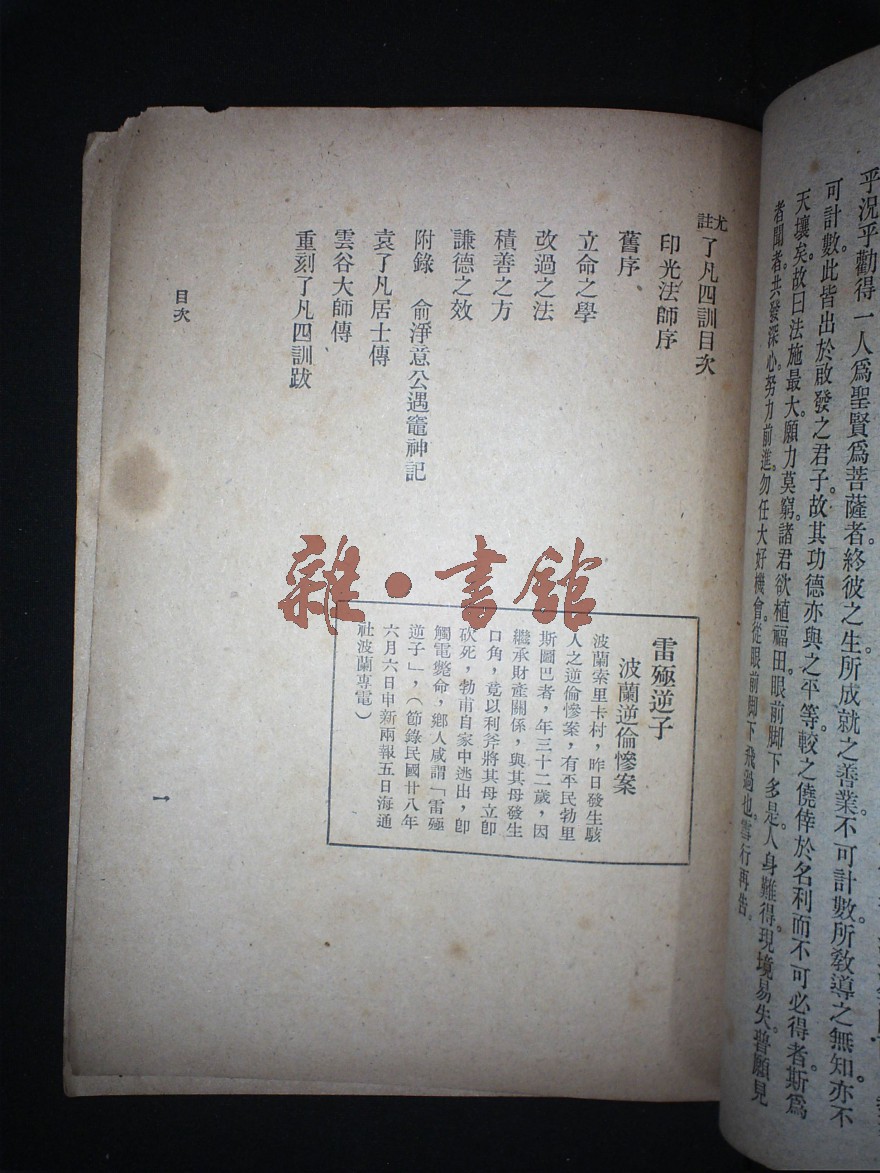 乎況乎勸得一人爲聖賢爲菩薩者。終彼之生所成就之善業。不可計數。所敎導之無知。亦不
可計數。此皆出於啟發之君子。故其功德亦與之平等。較之僥倖於名利而不可必得者。斯爲
天壤矣。故曰法施最大。願力莫窮。諸君欲植福田。眼前脚下多是。人身難得。現境易失。普願見
者聞者。共發深心。努力前進。勿任大好機會從眼前脚下飛過也。雪行再告。
尤註 了凡四訓目次
印光法師序
舊序
立命之學
改過之法
積善之方
謙德之效
附錄 俞淨意公遇竈神記
袁了凡居士傳
雲谷大師傳
重刻了凡四訓跋
目次
一
雜·書館
雷殛逆子
波蘭逆倫慘案
波蘭索里卡村，昨日發生駭
人之逆倫慘案，有平民勃里
斯圖巴者，年三十二歲，因
繼承財產關係，與其母發生
口角，竟以利斧將其母立卽
砍死，勃甫自家中逃出，卽
觸電斃命，鄉人咸謂「雷殛
逆子」，（節錄民國廿八年
六月六日申新兩報五日海通
社波蘭專電）